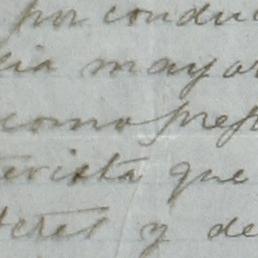 por conduc
lia mayor
como pref
terista que
teres y de